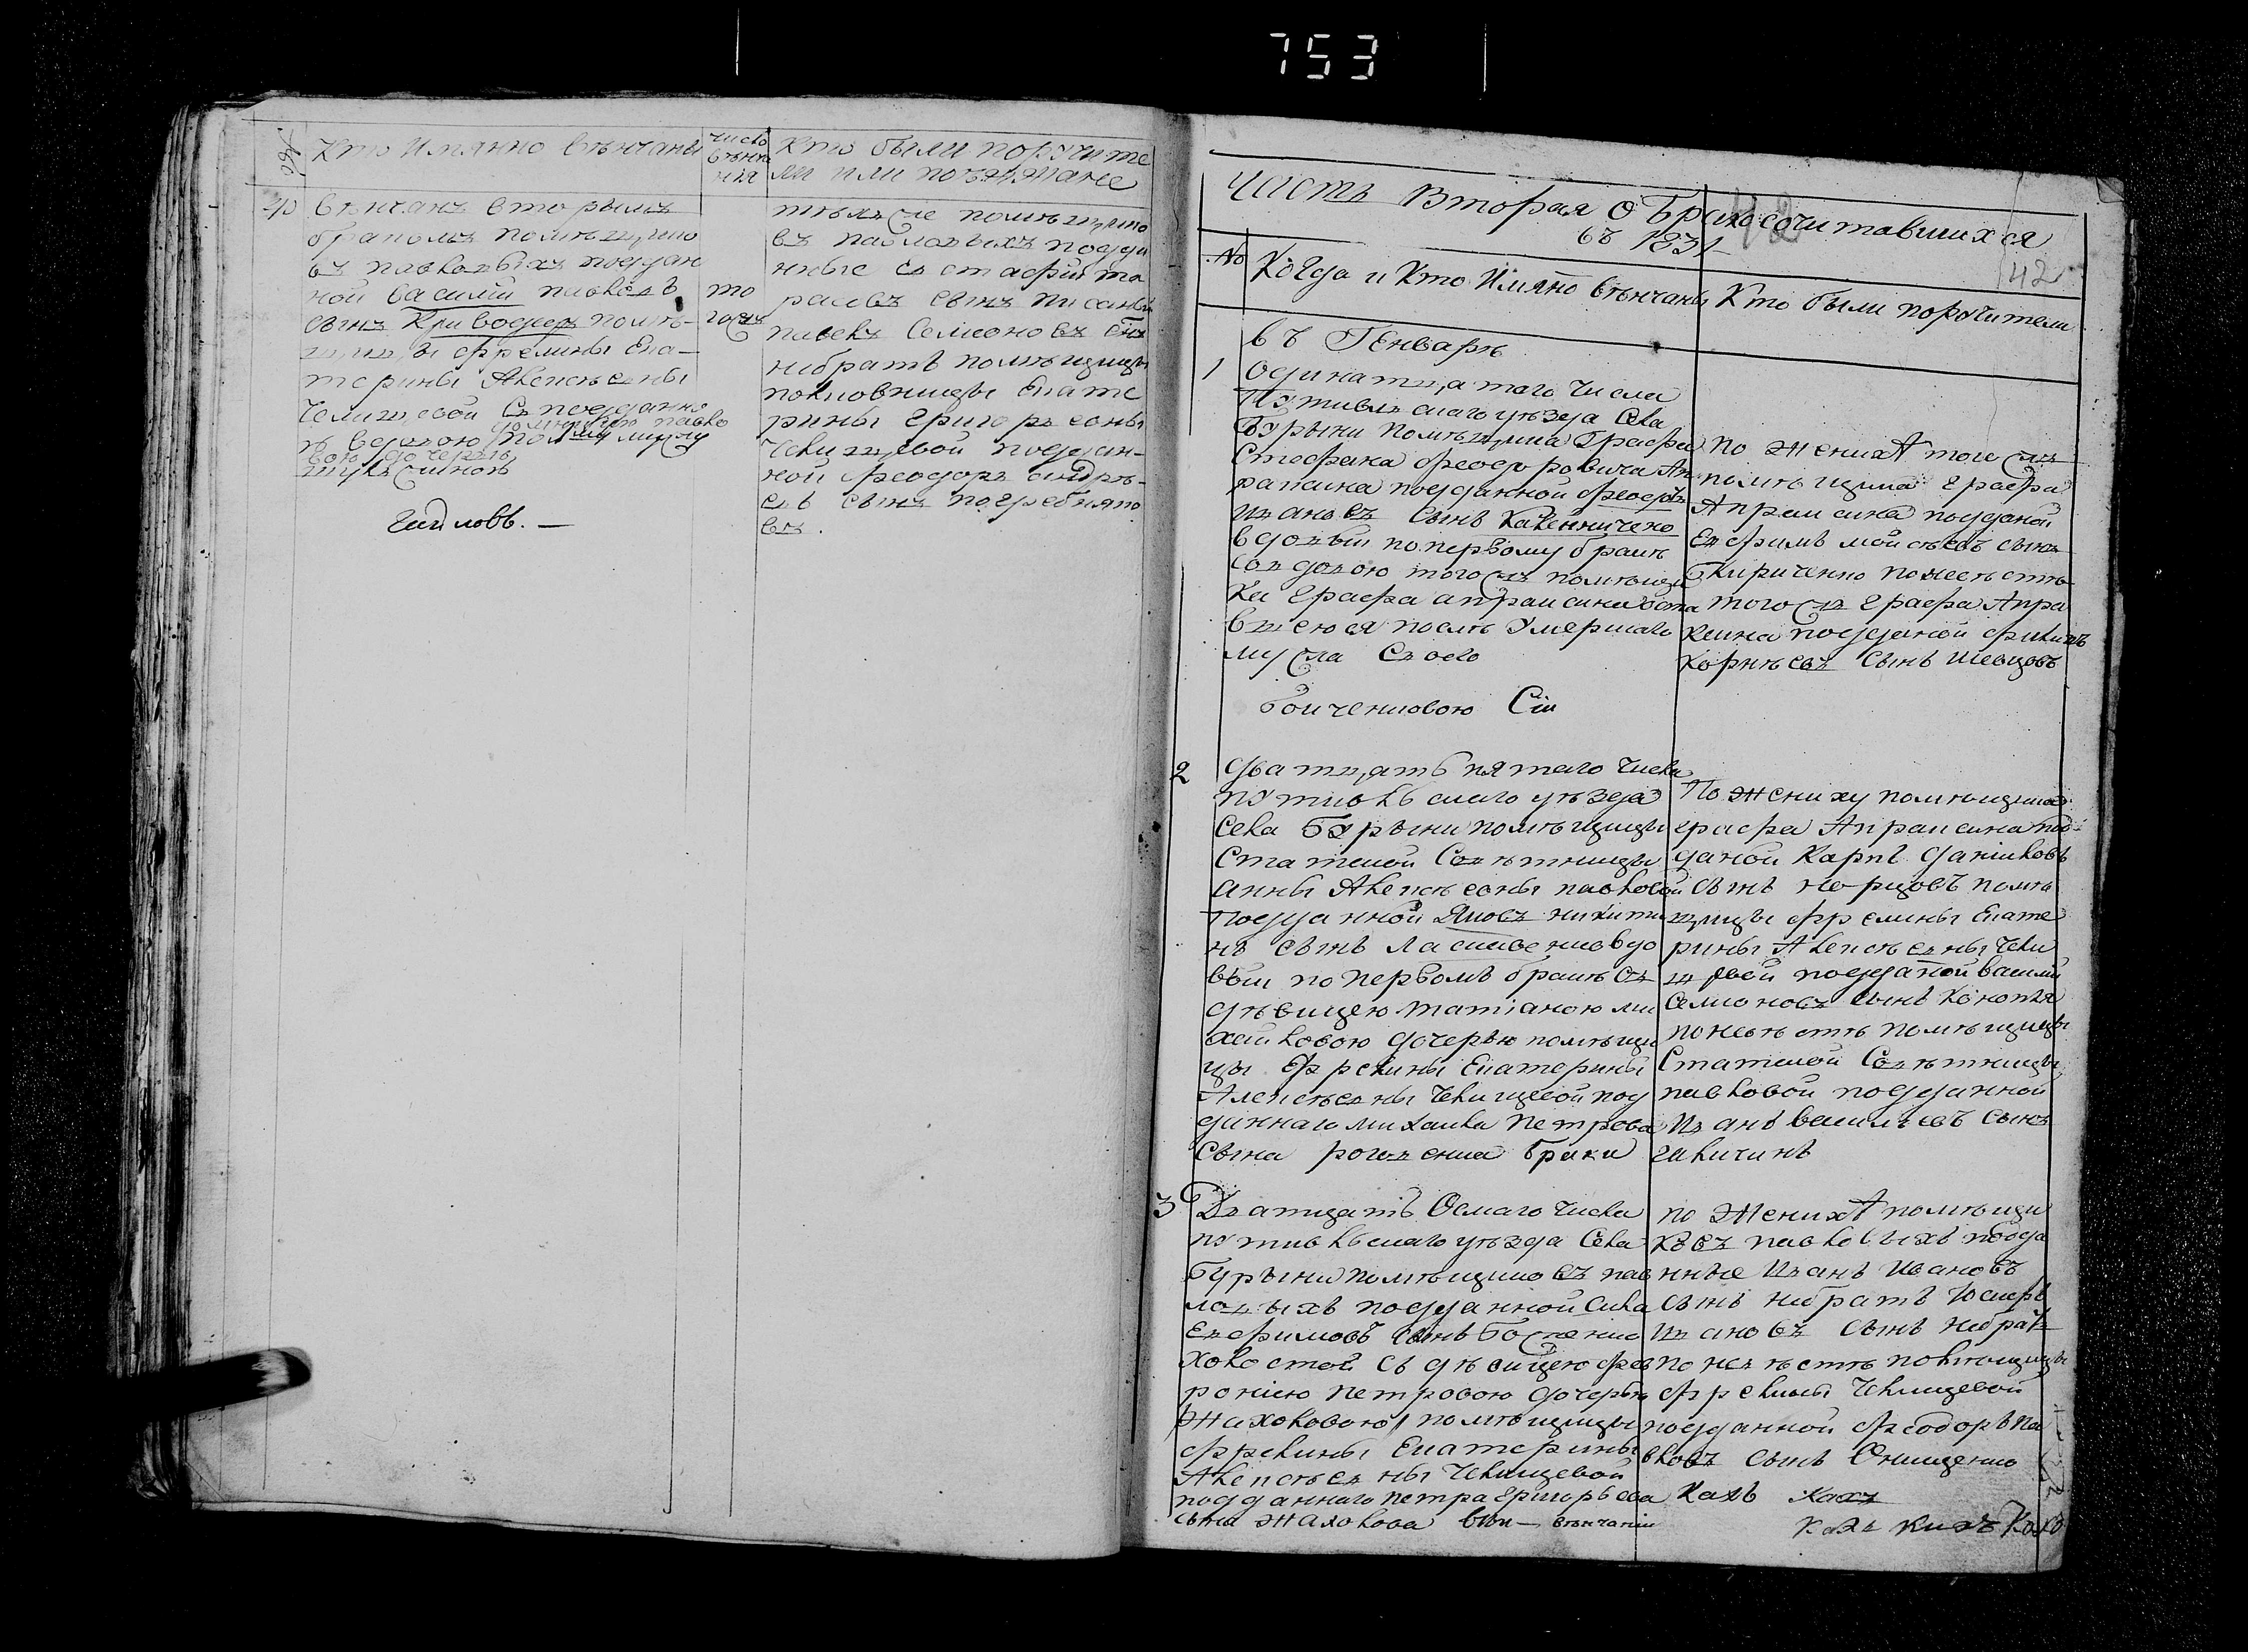 753
Кто Имянно венчаны
число
венча
нія
Кто были поручите
ли или поезжане
40
Венчанъ вторымъ
бракомъ помещико
въ павловыхъ поддан
ной василій павловъ
сынъ Криводеръ поме-
щицы фрелины Ека-
терины Алексеевны
Челищевой
вдовою по мужу
дочерью
то
гожъ
техже помещико
въ павловыхъ подда
нные евстафій та
расовъ сынъ писаный
павелъ Семионовъ сынъ
небратъ помещицы
полковницы Екате
рины Григорьевны
Челищевой поддан-
ной феодоръ андре-
евъ сынъ погребняко
въ.
Часть Вторая о Бракосочитавшихся
въ 1831
42
№
Когда и Кто Имяно венчаны
Кто были поручители
въ Генваре
1
Одинатцатого числа
Путивльскаго уезда Села
Бурыни помещика Графа
Стефана феодоровича Ап
раксина подданной феодоръ
Ивановъ сынъ
вдовый по первому браке
со вдовою того жъ помещи
ка Графа апраксина оста
вшеюся после умершаго
мужа своего
По жениху того жъ
помещика Графа
Апраксина подданой
Ефимъ мойсеевъ сынъ
Кириченко по невесте
того жъ Графа Апра
ксина подданой филипъ
Корнеевъ сынъ Шевцовъ
2
дватцать пятаго числа
путивльскаго уезда
села Бурыни помещицы
Статской Советницы
анны Алексеевны павловой
Подданной Яковъ никити
нъ сынъ вдо
вый по первомъ браке съ
девицею татіаною ми
хайловою дочерью помещи
цы фрелины Екатерины
Алексеевны Челищевой под
даннаго михайла Петрова
Сына
По жениху помещика
графа Апраксина под
даной Карпъ даниловъ
сынъ поме
щицы фрелины Екате
рины Алексеевны Чели
щевой подданой василій
Семионовъ сынъ Конопля
по невесте помещицы
Статской Советницы
павловой подданной
Иванъ васильевъ сынъ
3
Дватцать Осмаго числа
путивльскаго уезда Села
Бурыни помещиковъ пав
ловыхъ подданной Сила
Ефимовъ сынъ Боженко
холостой съ девицею фев
роніею петровою дочерью
Жахоловою помещицы
фрелины Екатерины
Алексеевны Челищевой
подданнаго петра Григорьева
сына Жахолова венчаніи
по жениху помещи
ковъ павловыхъ подда
нные Иванъ Ивановъ
сынъ небратъ Іосифъ
Ивановъ сынъ небратъ
по невесте помещицы
фрелины Челищевой
подданной феодоръ па
вловъ сынъ Онищенко